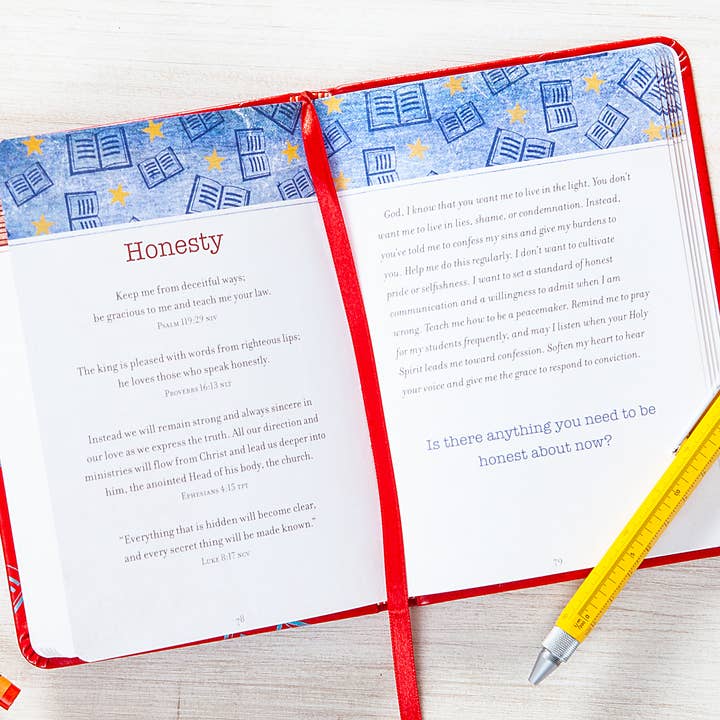 Honesty
Keep me from deceitful ways;
be gracious to me and teach me your law.
Psalm 119:29 NIV
The king is pleased with words from righteous lips;
he loves those who speak honestly.
Proverbs 16:13 NLT
Instead we will remain strong and always sincere in
our love as we express the truth. All our direction and
ministries will flow from Christ and lead us deeper into
him, the anointed Head of his body, the church.
Ephesians 4:15 TPT
“Everything that is hidden will become clear,
and every secret thing will be made known.”
Luke 8:17 NCV
78
God, I know that you want me to live in the light. You don't
want me to live in lies, shame, or condemnation. Instead,
you've told me to confess my sins and give my burdens to
you. Help me do this regularly. I don't want to cultivate
pride or selfishness. I want to set a standard of honest
communication and a willingness to admit when I am
wrong. Teach me how to be a peacemaker. Remind me to pray
for my students frequently, and may I listen when your Holy
Spirit leads me toward confession. Soften my heart to hear
your voice and give me the grace to respond to conviction.
Is there anything you need to be
honest about now?
79